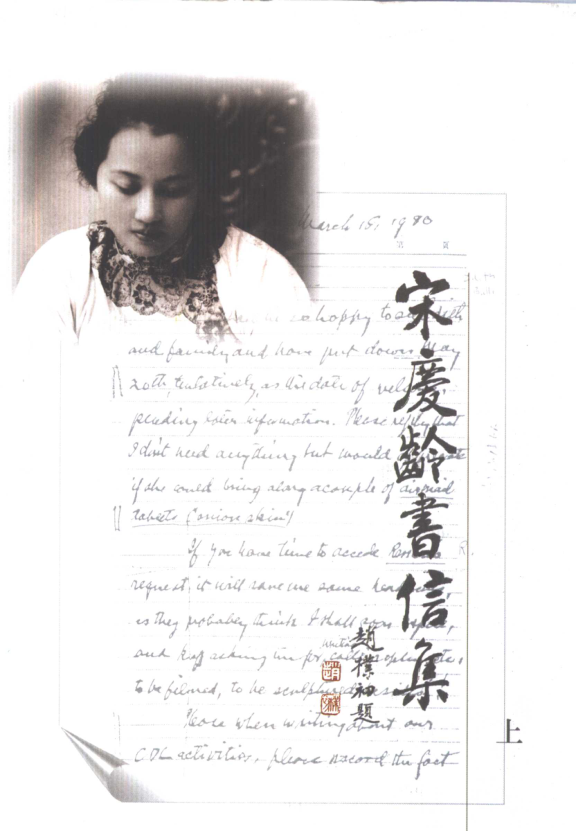 March 15, 1980
so happy to see
and family and have put down May
20th, tentatively, as the date of
pending later information. Please reply that
I don't need anything but would
if she could bring along a couple of airmail
tablets ("onion skin")
If you have time to accede
request, it will save me some
as they probably think I shall
and keep asking me for
to be filmed, to be sculptured
Please when writing about our
CDL activities, please record the fact
宋慶齡書信集
趙樸初題
上